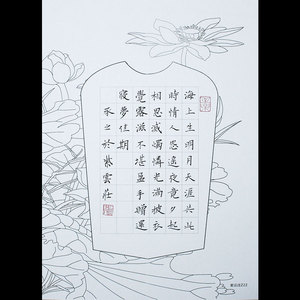 海上生明月天涯共此
時情人怨遙夜竟夕起
相思滅燭憐光滿披衣
覺露滋不堪盈手贈還
寢夢佳期
於紫雲莊